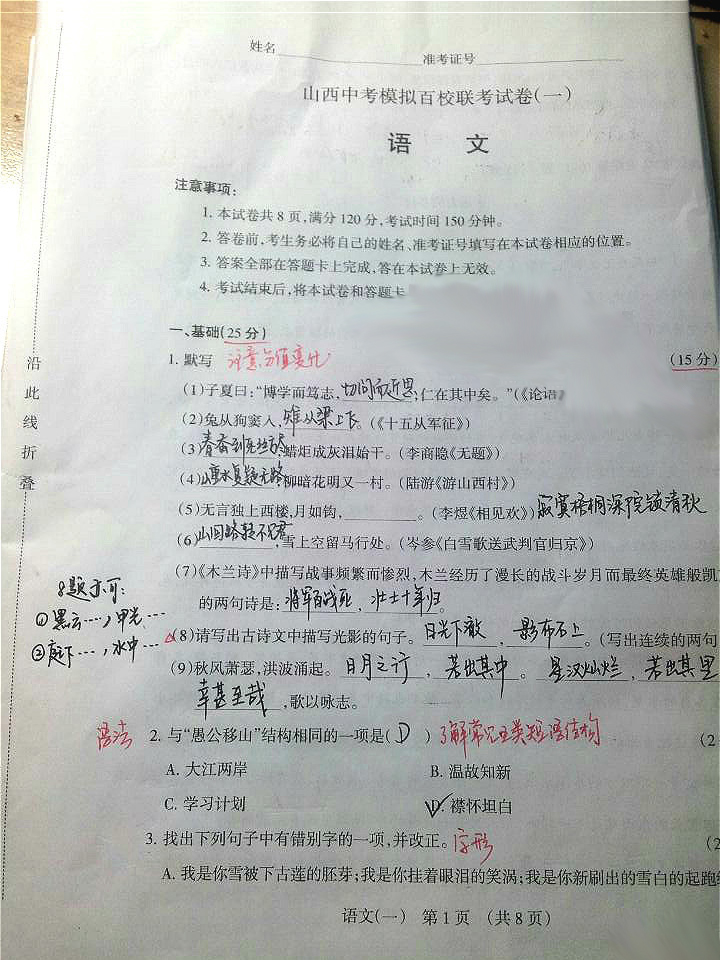 姓名 准考证号
山西中考模拟百校联考试卷(一)
语 文
注意事项:
1. 本试卷共8页,满分120分,考试时间150分钟。
2. 答卷前,考生务必将自己的姓名、准考证号填写在本试卷相应的位置。
3. 答案全部在答题卡上完成,答在本试卷上无效。
4. 考试结束后,将本试卷和答题卡
一、基础(25分)
1. 默写 注意分值变化 (15分)
(1)子夏曰:“博学而笃志,切问而近思,仁在其中矣。”(《论语》
(2)兔从狗窦入,雉从梁上飞。(《十五从军征》)
(3)春蚕到死丝方尽,蜡炬成灰泪始干。(李商隐《无题》)
(4)山重水复疑无路,柳暗花明又一村。(陆游《游山西村》)
(5)无言独上西楼,月如钩,。(李煜《相见欢》)寂寞梧桐深院锁清秋
(6)山回路转不见君,雪上空留马行处。(岑参《白雪歌送武判官归京》)
(7)《木兰诗》中描写战事频繁而惨烈,木兰经历了漫长的战斗岁月而最终英雄般凯
的两句诗是:将军百战死,壮士十年归。
8题亦可:
①黑云……,甲光…
②庭下…,水中…
(8)请写出古诗文中描写光影的句子。日光下澈,影布石上。(写出连续的两句
(9)秋风萧瑟,洪波涌起。日月之行,若出其中。星汉灿烂,若出其里
幸甚至哉,歌以咏志。
语法 2. 与“愚公移山”结构相同的一项是( D ) 了解常见五类短语结构 (2
A. 大江两岸 B. 温故知新
C. 学习计划 D. 襟怀坦白
3. 找出下列句子中有错别字的一项,并改正。字形 (2
A. 我是你雪被下古莲的胚芽;我是你挂着眼泪的笑涡;我是你新刷出的雪白的起跑
语文(一) 第1页 (共8页)
沿此线折叠